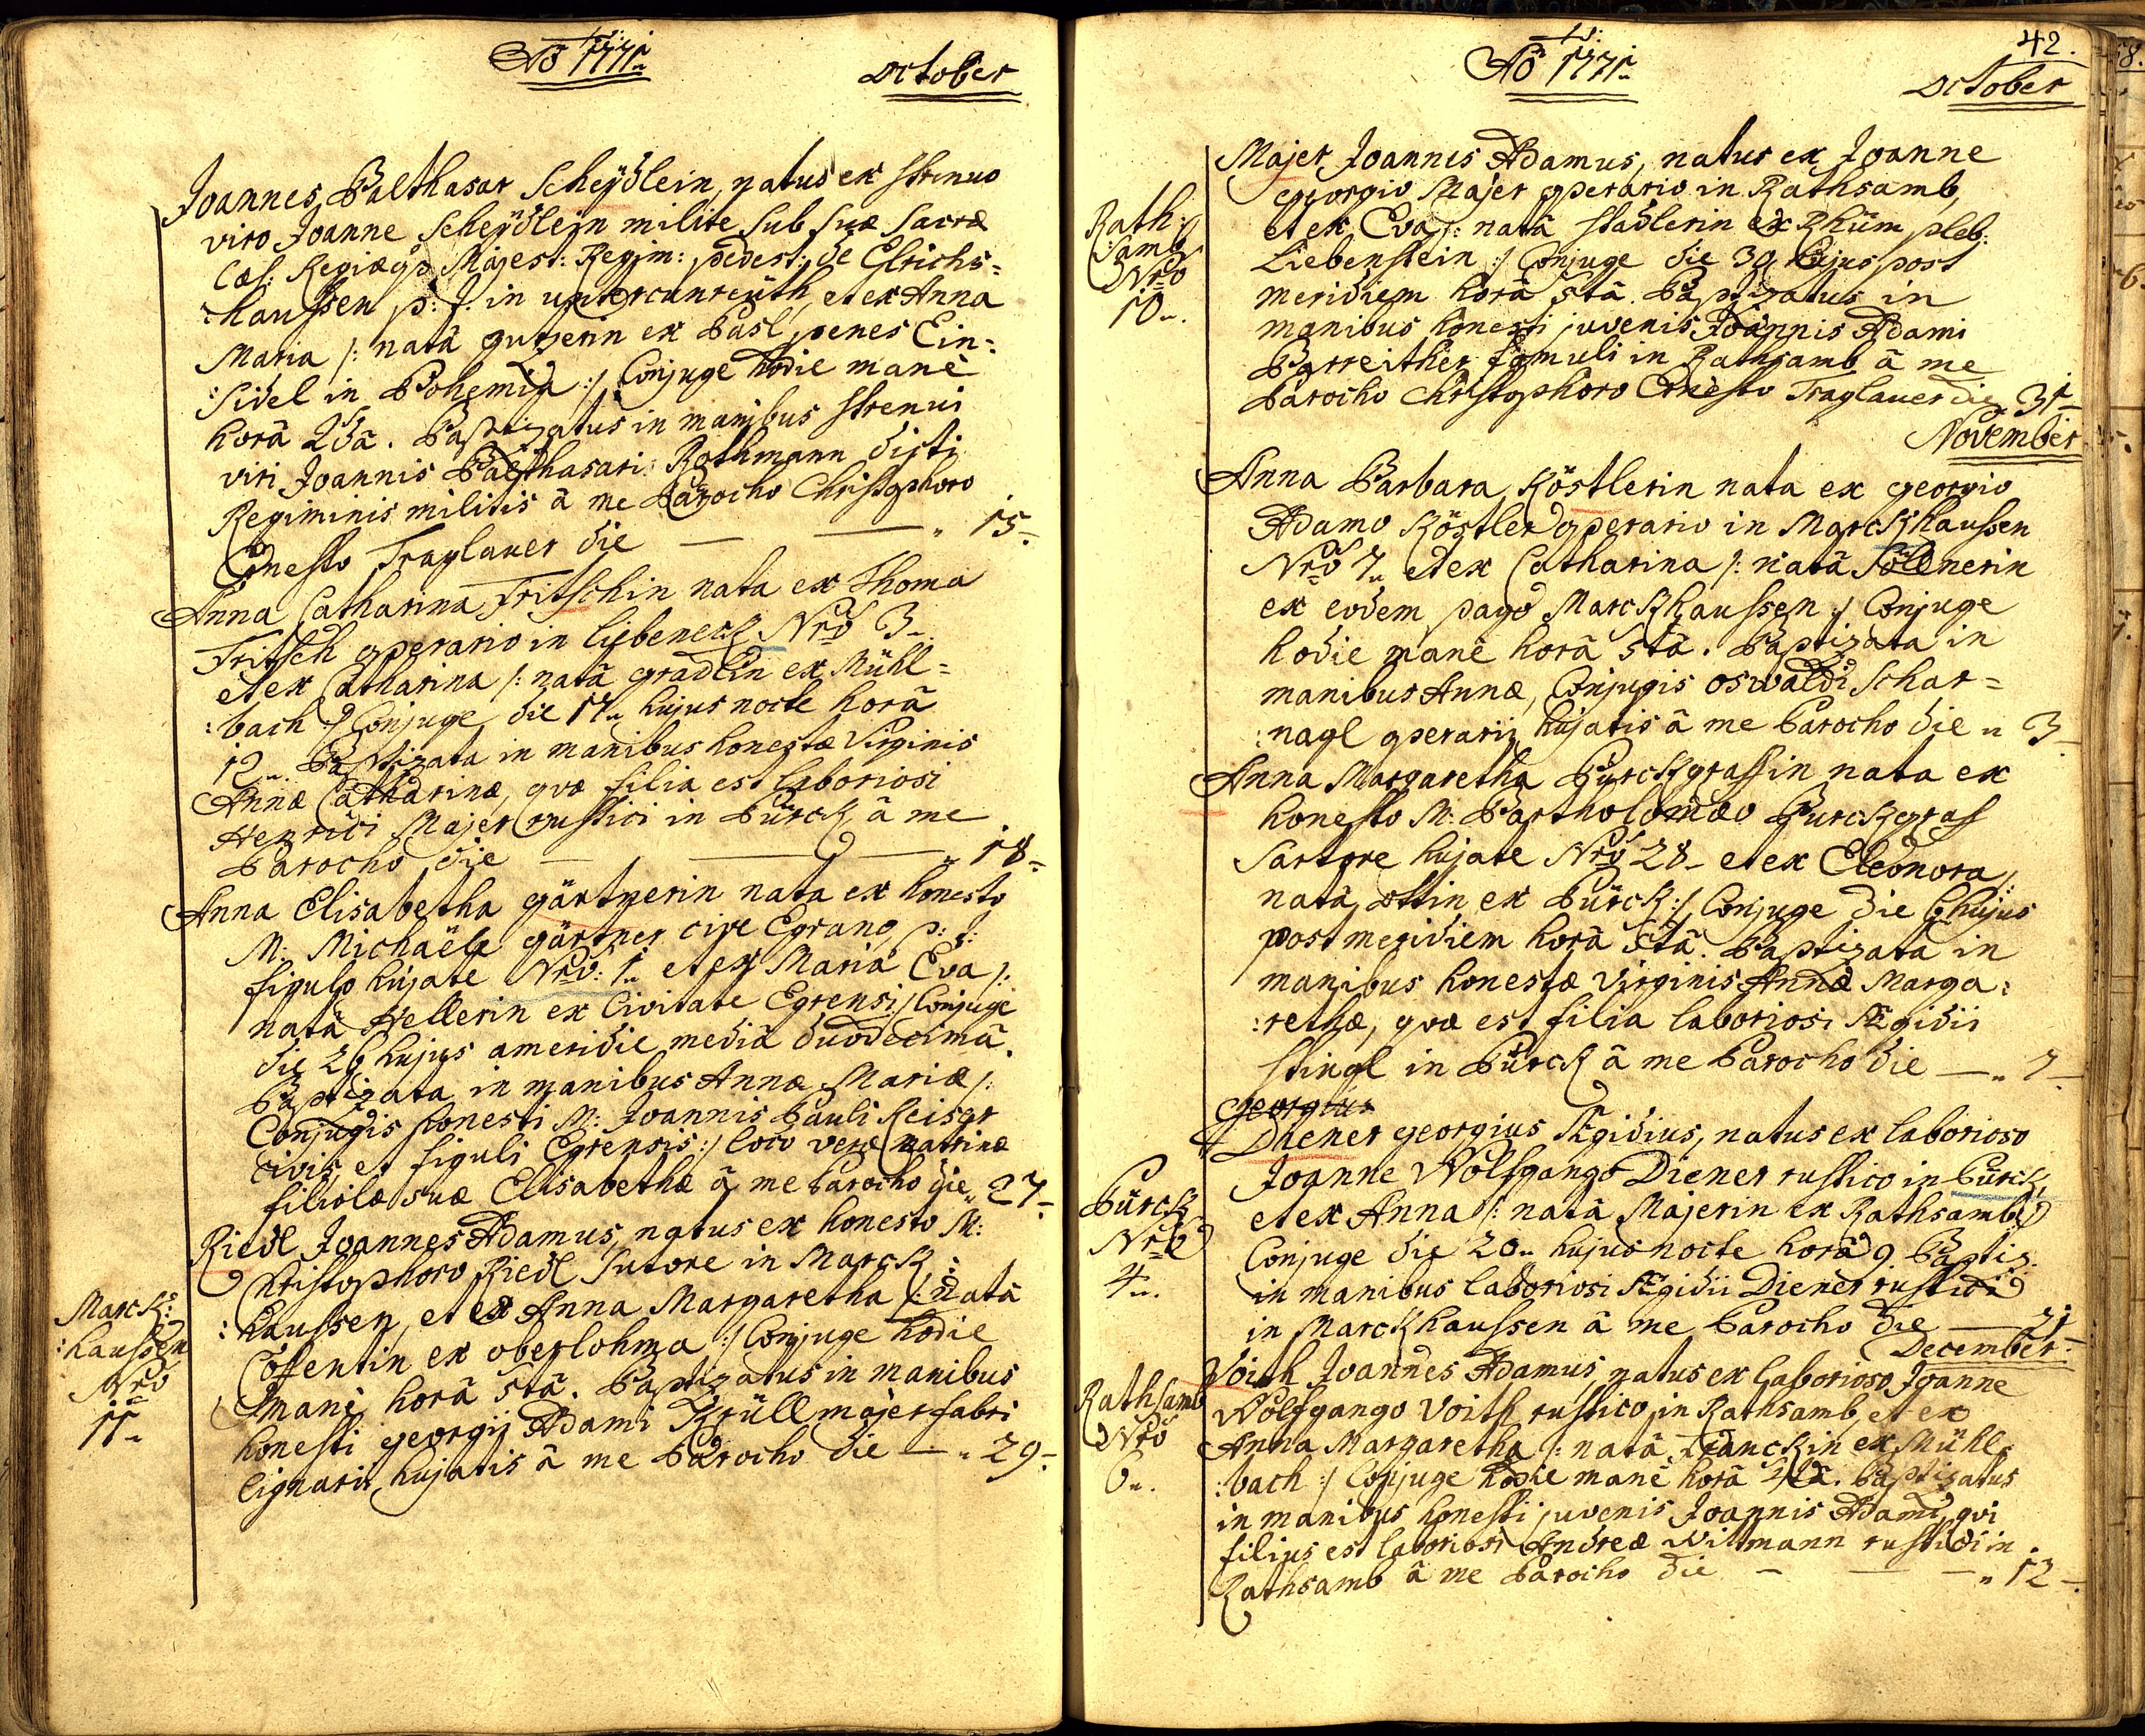 Aō 1771
October
Joannes Balthasar Scheydlein, natus ex strenuo
viro Joanne Scheydlein milite sub suæ sacræ
Cæs: Regiæq3 Majest: Regim: pedest: de Elrichs=
:haussen p: t. in unter cunreuth, et ex Anna
Maria /: natâ gutzerin ex Basl, penes Ein=
:sidel in Bohemia :/ Conjuge hodie manè
horâ 2dâ. Baptizatus in manibus strenui
viri Joannis Balthasari Rothmann dicti
Regiminis militis â me Parocho Christophoro
Ernesto Traglauer die — — „ 15.
Anna Catharina Fritschin nata ex Thoma
Fritsch operario in liebeneck Nrō 3.
et ex Catharina /: natâ gradlin ex Mühl=
:bach :/ Conjuge, die 17„ hujus nocte horâ
12„. Baptizata in manibus honestæ Virginis
Annæ Catharinæ, quæ filia est laboriosi
Henrici Majer rustici in Bürck â me
Parocho die — — — „ 18.
Anna Elisabetha gärtnerin nata ex honesto
M: Michaële gärtner cive Egrano p: t:
figulo hujate Nrō: 1„ et ex Maria Eva /:
natâ Hellerin ex Civitate Egrensi :/ Conjuge
die 26 hujus a meridie mediâ duodecimâ.
Baptizata in manibus Annæ Mariæ /:
Conjugis honesti M: Joannis Pauli Reiser
civis et figuli Egrensis :/ loco veræ matrinæ
filiolæ suæ Elisabethæ â me Parocho die „ 27.
Riedl Joannes Adamus, natus ex honesto M:
Christophoro Riedl sutore in Marck:
:haussen, et ex Anna Margaretha /: natâ
Cössentin ex oberlohma :/ Conjuge hodie
manè horâ 5tâ. Baptizatus in manibus
honesti georgij Adami Krüllmajer fabri
lignarii hujatis â me Parocho die — „ 29.
Marck:
:haussen
Nrō
11„
Aō 1771
42.
October
Majer Joannes Adamus, natus ex Joanne
georgio Majer operario in Rathsamb,
et ex Eva /: natâ stadlerin ex Rhüm pleb:
Liebenstein :/ Conjuge die 30 hujus post
meridiem horâ 5tâ. Baptizatus in
manibus honesti juvenis Joannis Adami
Barreither famuli in Rathsamb â me
Parocho Christophoro Ernesto Traglauer die 31
Rath:
:samb
Nrō
10„.
November
Anna Barbara Köstlerin nata ex georgio
Adamo Köstler operario in Marckhaussen
Nrō 7„ et ex Catharina /: natâ Söllnerin
ex eodem pago Marckhaussen :/ Conjuge
hodie manè horâ 5tâ. Baptizata in
manibus Annæ, Conjugis oswaldi Schar=
:nagl operarij hujatis â me Parocho die „ 3
Anna Margaretha Burckgrafin nata ex
honesto M: Bartholomæo Burckgraf
Sartore hujate Nrō 28„ et ex Eleonora /:
natâ ottin ex Bürck :/ Conjuge die 6 hujus
post meridiem horâ 5tâ. Baptizata in
manibus honestæ virginis Annæ Marga:
:rethæ, quæ est filia laboriosi Ægidii
stingl in Bürck â me Parocho die — „ 7
Georgius
Diener georgius Ægidius, natus ex laborioso
Joanne Wolfgango Diener rustico in Bürck,
et ex Anna /: natâ Majerin ex Rathsamb :/
Conjuge die 20„ hujus nocte horâ 9. Baptiz:
in manibus laboriosi Ægidii Diener rustici
in Marckhaussen â me Parocho die — 21
Bürck
Nrō
4„.
December.
Voith Joannes Adamus, natus ex laborioso Joanne
Wolfgango Voith rustico in Rathsamb, et ex
Anna Margaretha /: natâ Franckin ex Mühl=
:bach :/ Conjuge hodie manè horâ Baptizatus
in manibus honesti juvenis Joannis Adami, qui
filius est laboriosi Andreæ Wilmann rustici in
Rathsamb â me Parocho die — — — „ 12
Rathsamb
Nrō
6„.